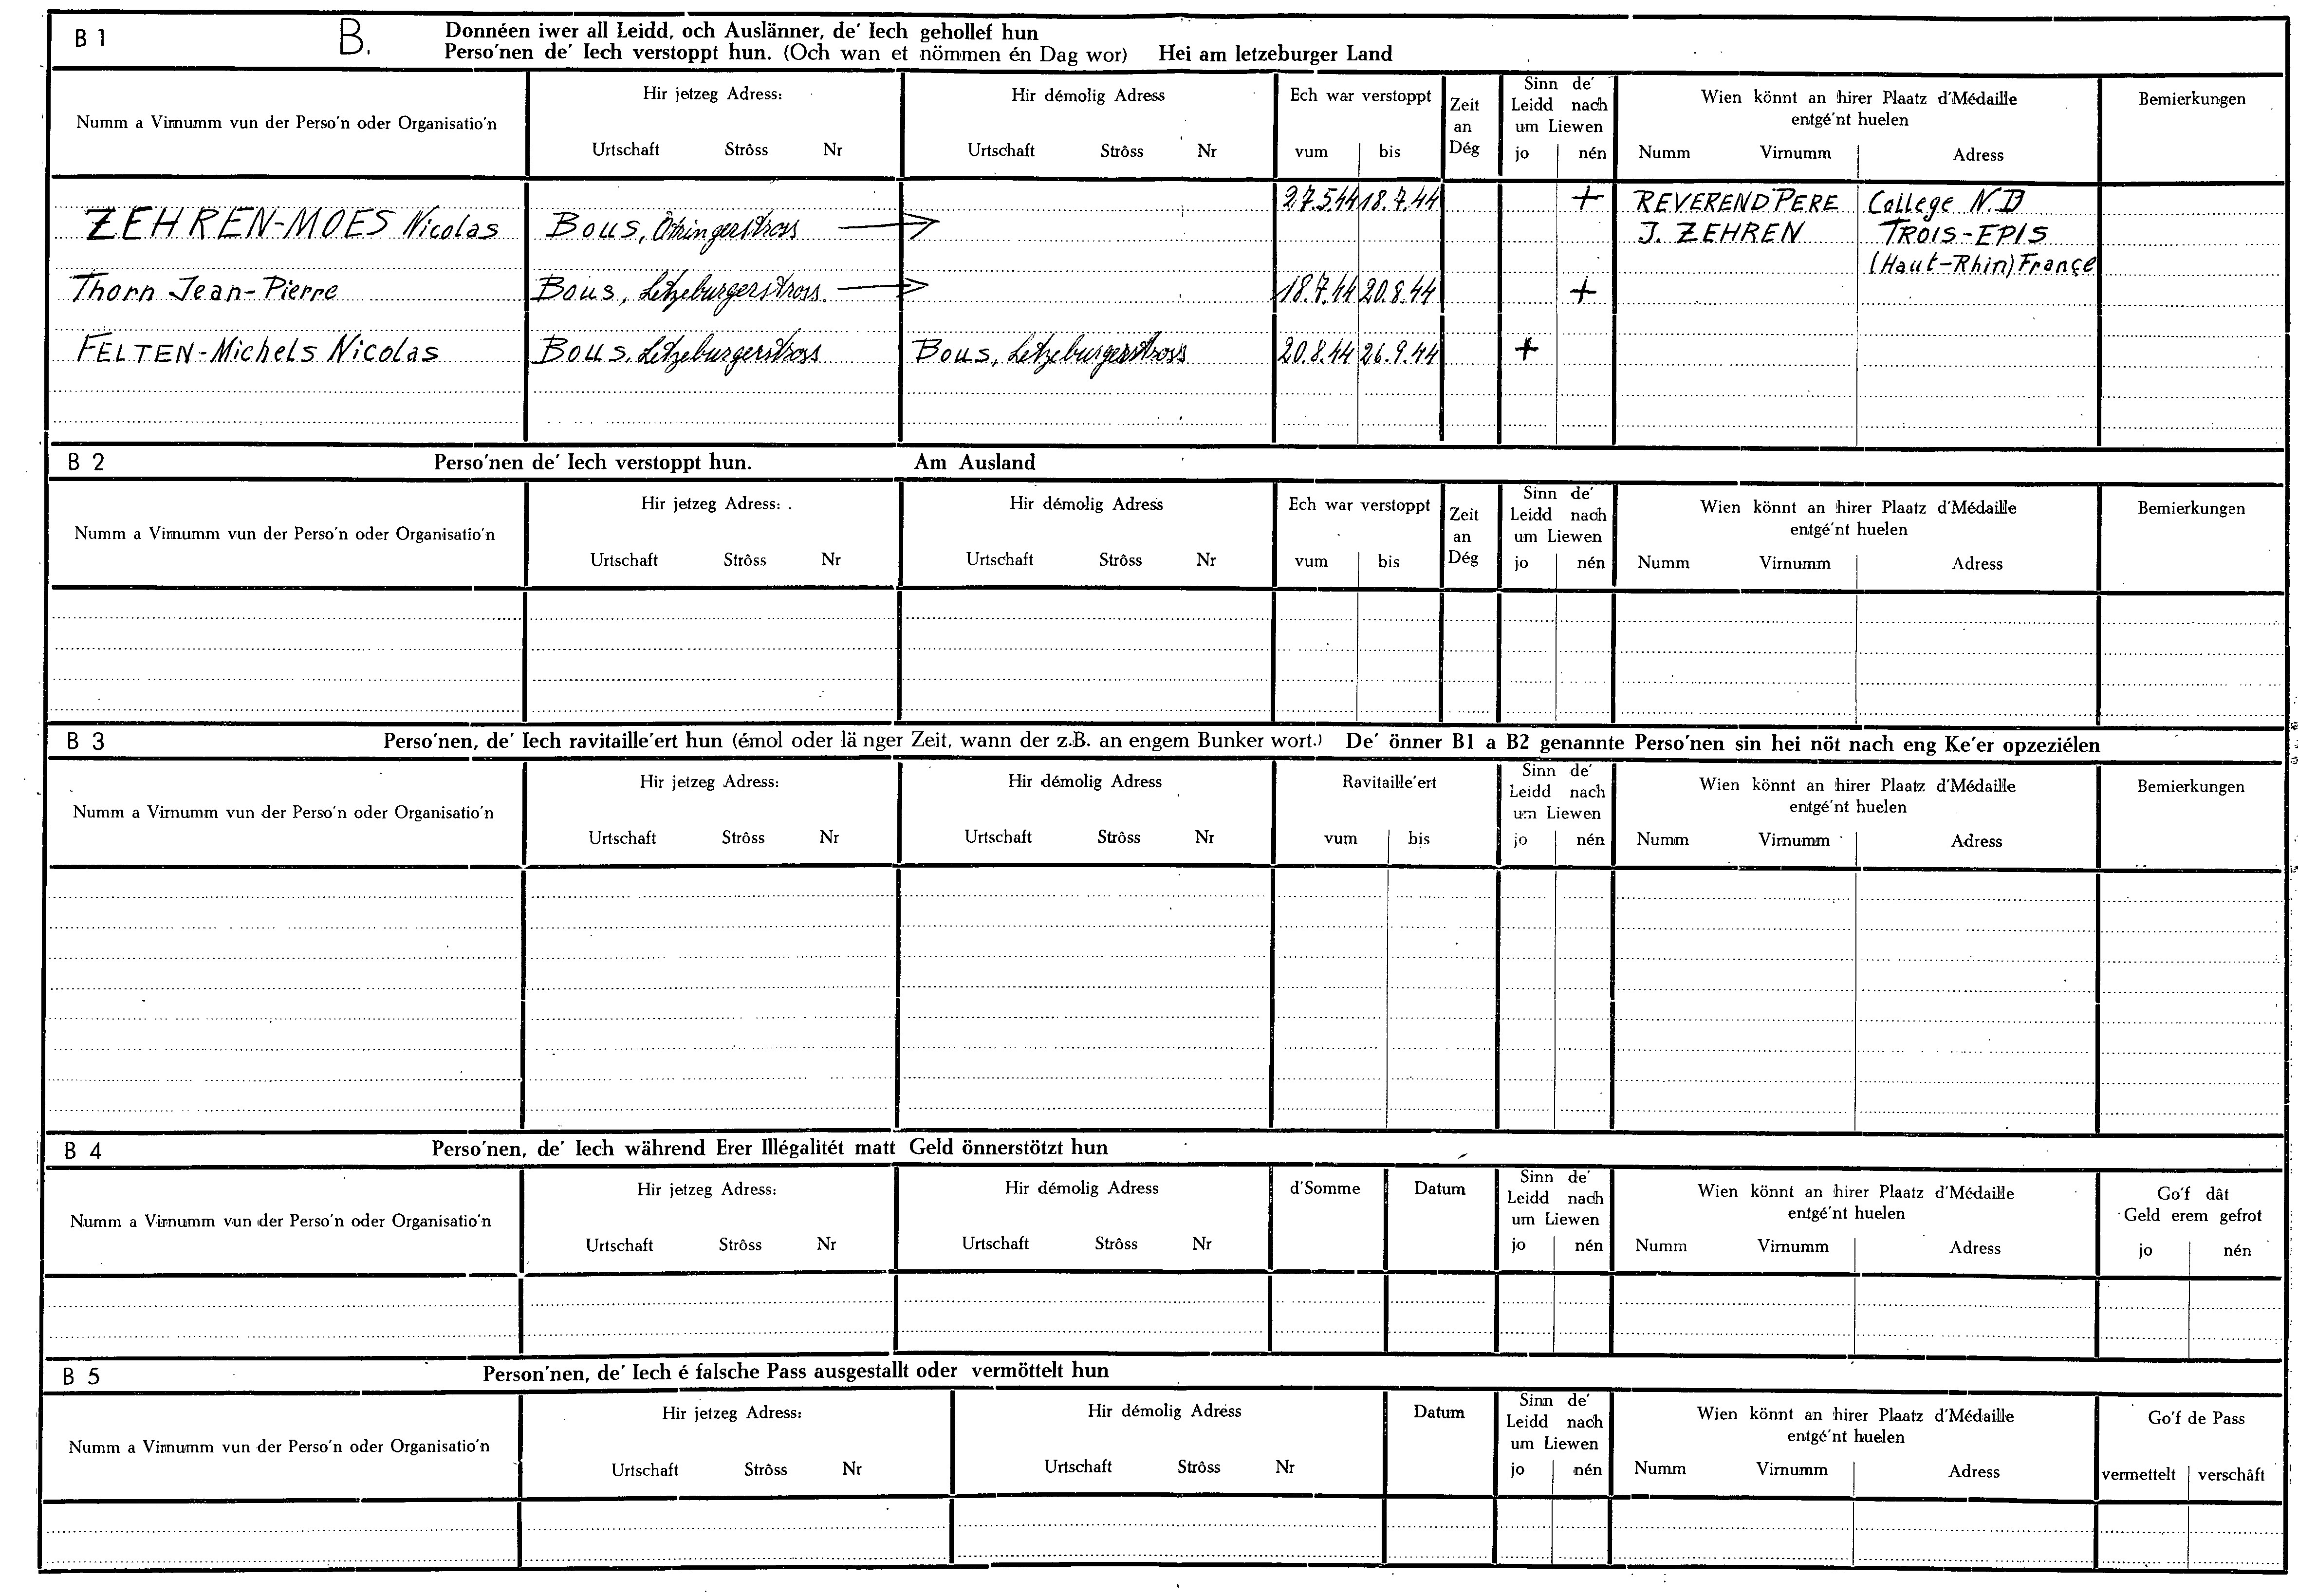 B 1
B.
Donnéen iwer all Leidd, och Auslänner, de' Iech gehollef hun
Perso'nen de' Iech verstoppt hun. (Och wan et nömmen én Dag wor) Hei am letzeburger Land
Numm a Virnumm vun der Perso'n oder Organisatio'n
Hir jetzeg Adress:
Urtschaft Strôss Nr
Hir démolig Adress
Urtschaft Strôss Nr
Ech war verstoppt
vum bis
Zeit
an
Dég
Sinn de'
Leidd nach
um Liewen
jo nén
Wien könnt an hirer Plaatz d'Médaille
entgé'nt huelen
Numm Virnumm Adress
Bemierkungen
ZEHREN-MOES Nicolas Bous, 27.5.44 18.7.44 + REVEREND PERE College N D
J. ZEHREN TROIS-EPIS
(Haut-Rhin) France
Thorn Jean-Pierre Bous, Letzeburgerstross 18.7.44 20.8.44 +
FELTEN-Michels Nicolas Bous, Letzeburgerstross Bous, Letzeburgerstross 20.8.44 26.9.44 +
B 2
Perso'nen de' Iech verstoppt hun. Am Ausland
Numm a Virnumm vun der Perso'n oder Organisatio'n
Hir jetzeg Adress:
Urtschaft Strôss Nr
Hir démolig Adress
Urtschaft Strôss Nr
Ech war verstoppt
vum bis
Zeit
an
Dég
Sinn de'
Leidd nach
um Liewen
jo nén
Wien könnt an hirer Plaatz d'Médaille
entgé'nt huelen
Numm Virnumm Adress
Bemierkungen
B 3
Perso'nen, de' Iech ravitaille'ert hun (émol oder länger Zeit, wann der z.B. an engem Bunker wort.) De' önner B1 a B2 genannte Perso'nen sin hei nöt nach eng Ke'er opzeziélen
Numm a Virnumm vun der Perso'n oder Organisatio'n
Hir jetzeg Adress:
Urtschaft Strôss Nr
Hir démolig Adress
Urtschaft Strôss Nr
Ravitaille'ert
vum bis
Sinn de'
Leidd nach
um Liewen
jo nén
Wien könnt an hirer Plaatz d'Médaille
entgé'nt huelen
Numm Virnumm Adress
Bemierkungen
B 4
Perso'nen, de' Iech während Erer Illégalitét matt Geld önnerstötzt hun
Numm a Virnumm vun der Perso'n oder Organisatio'n
Hir jetzeg Adress:
Urtschaft Strôss Nr
Hir démolig Adress
Urtschaft Strôss Nr
d'Somme
Datum
Sinn de'
Leidd nach
um Liewen
jo nén
Wien könnt an hirer Plaatz d'Médaille
entgé'nt huelen
Numm Virnumm Adress
Go'f dât
Geld erem gefrot
jo nén
B 5
Person'nen, de' Iech é falsche Pass ausgestallt oder vermöttelt hun
Numm a Virnumm vun der Perso'n oder Organisatio'n
Hir jetzeg Adress:
Urtschaft Strôss Nr
Hir démolig Adress
Urtschaft Strôss Nr
Datum
Sinn de'
Leidd nach
um Liewen
jo nén
Wien könnt an hirer Plaatz d'Médaille
entgé'nt huelen
Numm Virnumm Adress
Go'f de Pass
vermettelt verschâft